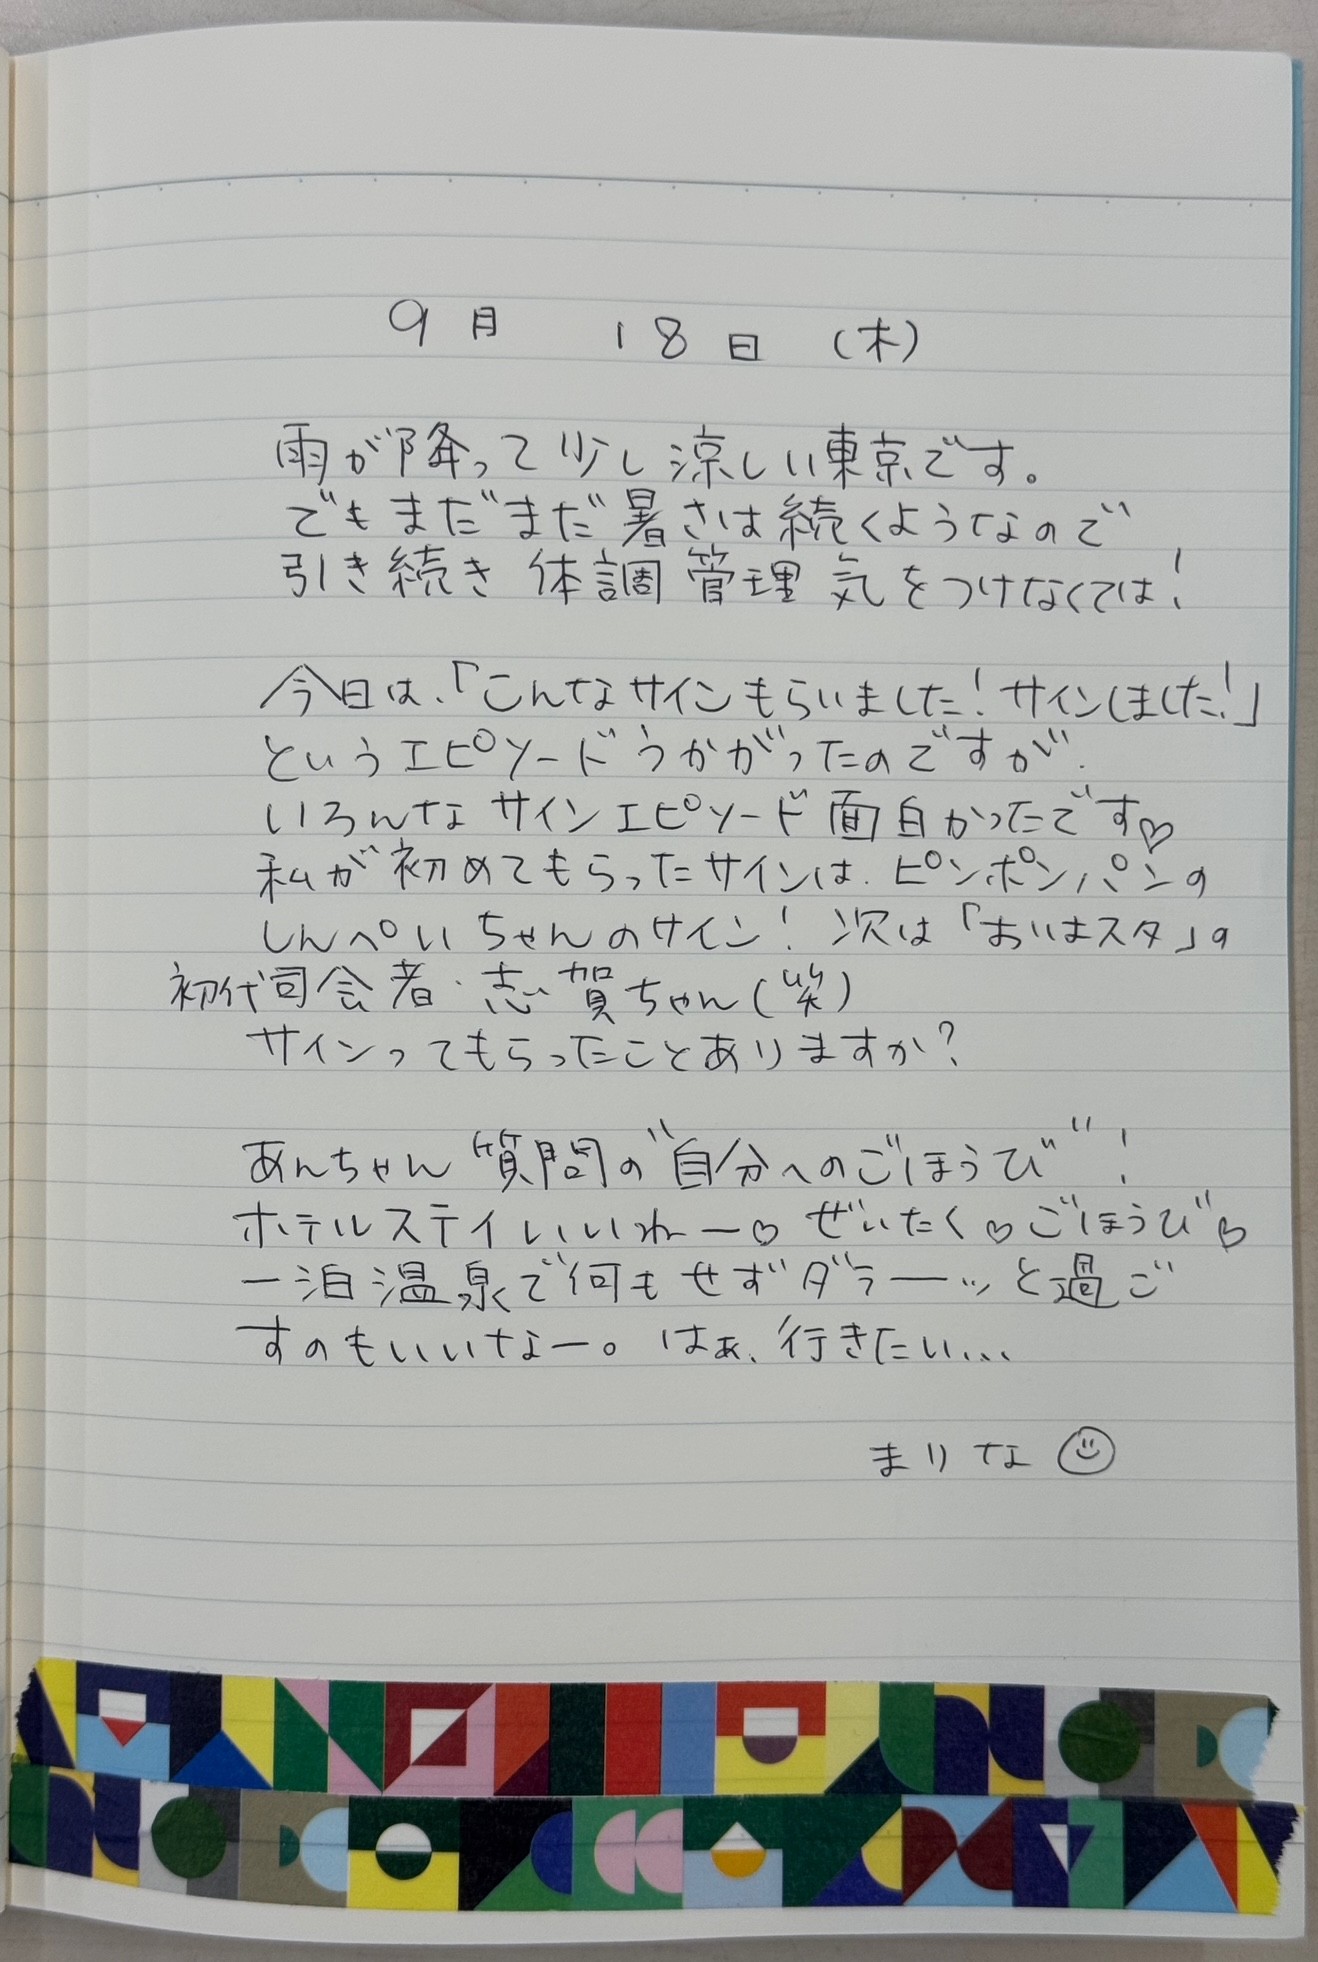 9月 18日 (木)
雨が降って少し涼しい東京です。
でもまだまだ暑さは続くようなので
引き続き 体調管理 気をつけなくては!
今日は、「こんなサインもらいました!サインしました!」
というエピソードうかがったのですが、
いろんなサインエピソード面白かったです♡
私が初めてもらったサインは、ピンポンパンの
しんぺいちゃんのサイン! 次は「おはスタ」の
初代司会者・志賀ちゃん(笑)
サインってもらったことありますか?
あんちゃん質問の"自分へのごほうび"!
ホテルステイいいわー♡ ぜいたく♡ごほうび♡
一泊温泉で何もせずダラーッと過ご
すのもいいなー。はぁ、行きたい...
まりな ☺